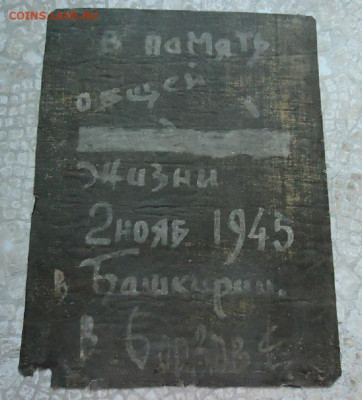 COINS.LAVE.RU
в память
общей
жизни
2 нояб. 1945
в Башкирии.
в